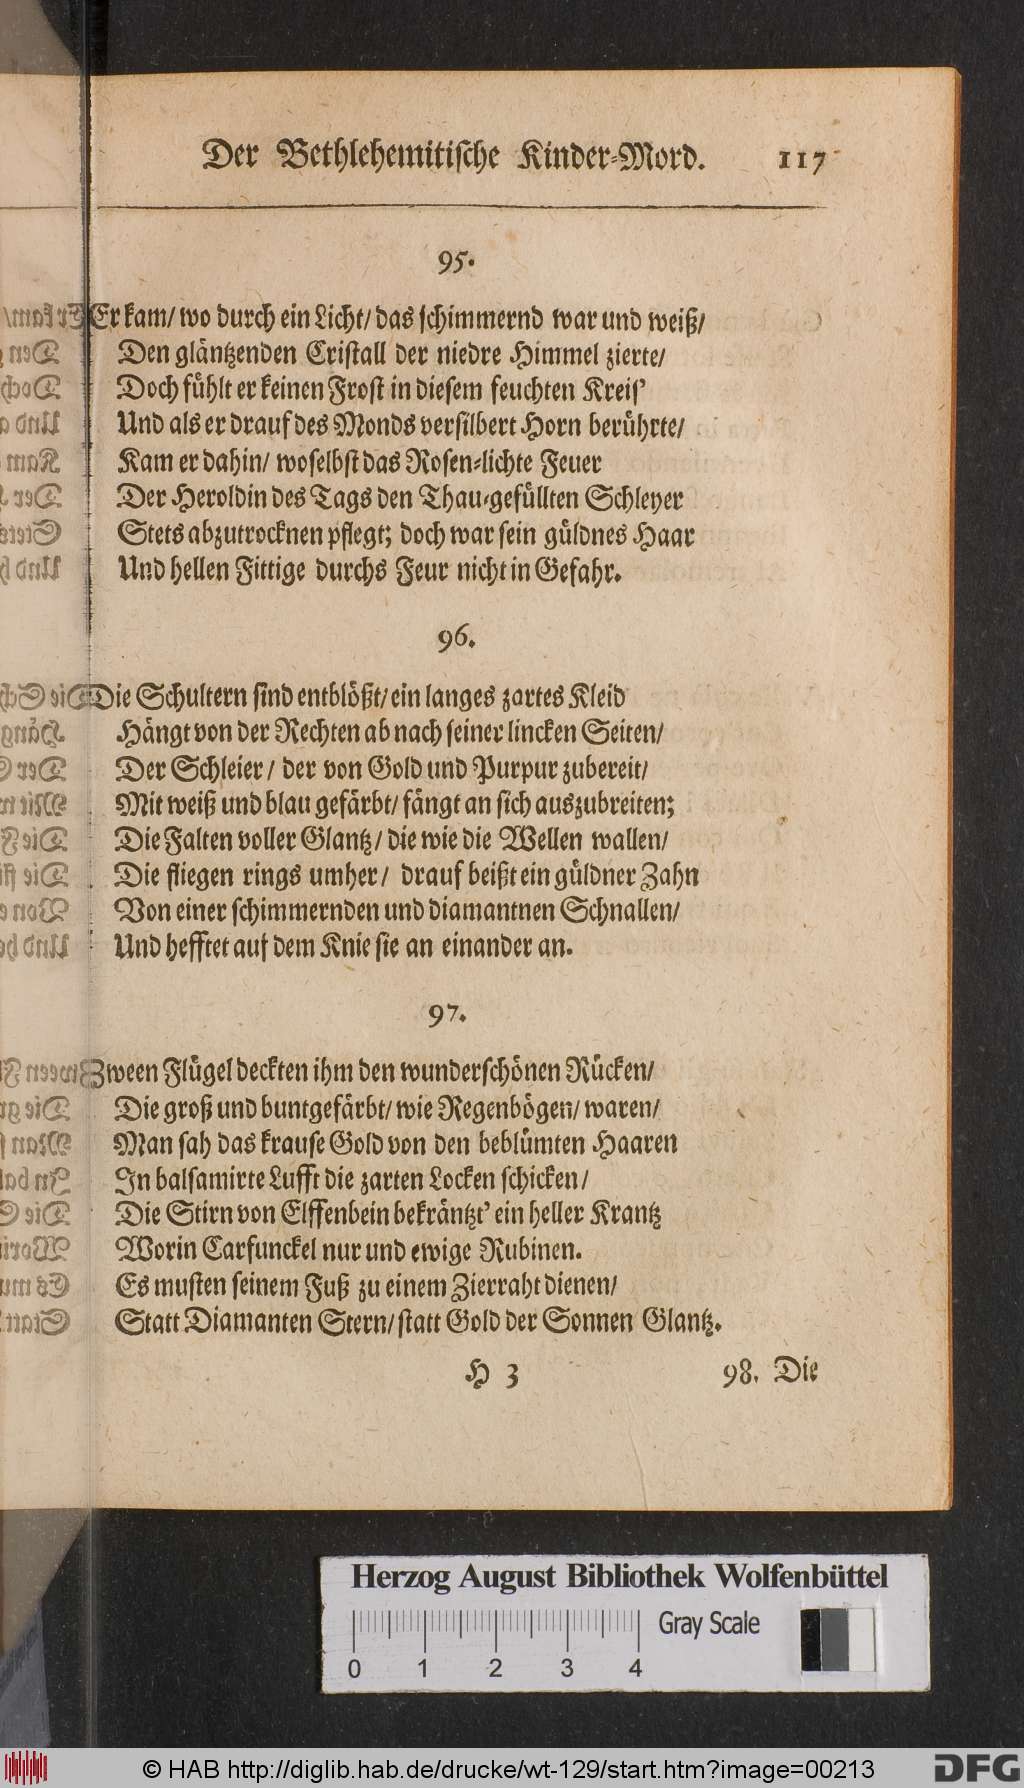 Der Bethlehemitische Kinder-Mord. 117
95.
Er kam/ wo durch ein Licht/ das schimmernd war und weiß/
Den gläntzenden Cristall der niedre Himmel zierte/
Doch fühlt er keinen Frost in diesem feuchten Kreis'
Und als er drauf des Monds versilbert Horn berührte/
Kam er dahin/ woselbst das Rosen-lichte Feuer
Der Heroldin des Tags den Thau-gefüllten Schleyer
Stets abzutrocknen pflegt; doch war sein güldnes Haar
Und hellen Fittige durchs Feur nicht in Gefahr.
96.
Die Schultern sind entblößt/ ein langes zartes Kleid
Hängt von der Rechten ab nach seiner lincken Seiten/
Der Schleier/ der von Gold und Purpur zubereit/
Mit weiß und blau gefärbt/ fängt an sich auszubreiten;
Die Falten voller Glantz/ die wie die Wellen wallen/
Die fliegen rings umher/ drauf beißt ein güldner Zahn
Von einer schimmernden und diamantnen Schnallen/
Und hefftet auf dem Knie sie an einander an.
97.
Zween Flügel deckten ihm den wunderschönen Rücken/
Die groß und buntgefärbt/ wie Regenbögen/ waren/
Man sah das krause Gold von den beblümten Haaren
In balsamirte Lufft die zarten Locken schicken/
Die Stirn von Elffenbein bekräntzt' ein heller Krantz
Worin Carfunckel nur und ewige Rubinen.
Es musten seinem Fuß zu einem Zierraht dienen/
Statt Diamanten Stern/ statt Gold der Sonnen Glantz.
H 3 98. Die
Herzog August Bibliothek Wolfenbüttel
Gray Scale
0 1 2 3 4
© HAB http://diglib.hab.de/drucke/wt-129/start.htm?image=00213
DFG